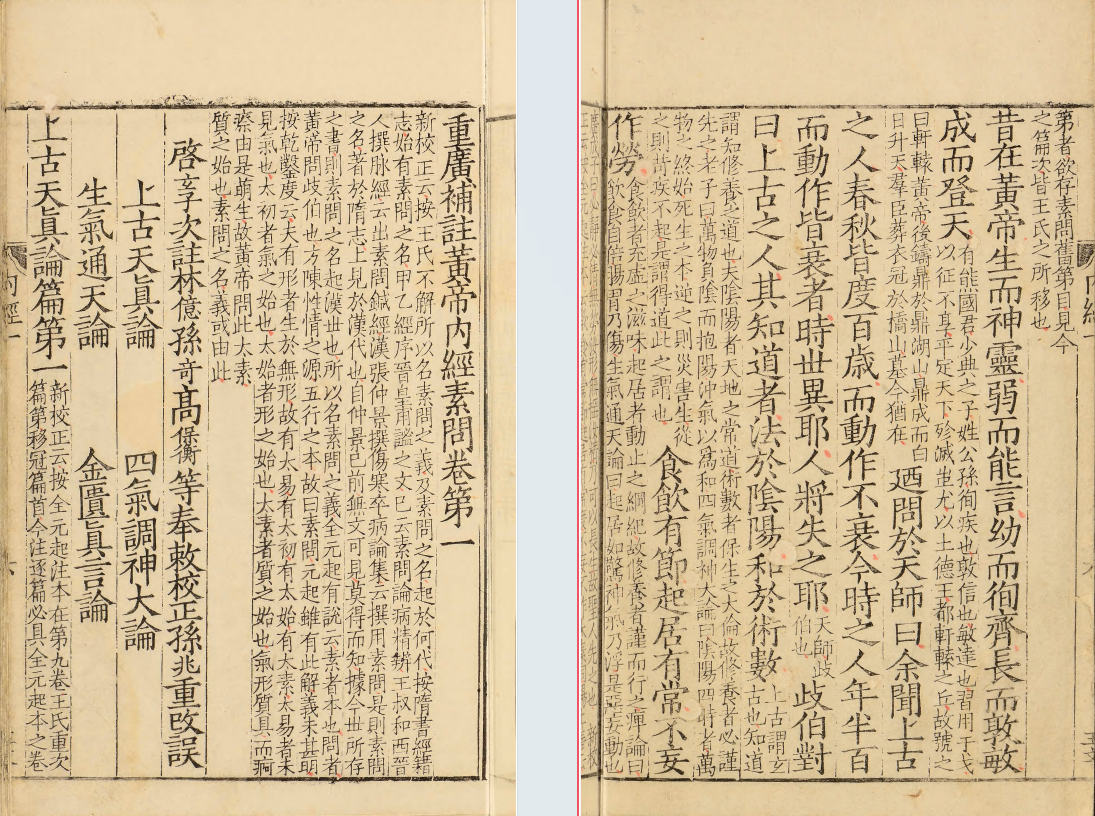 重廣補註黃帝內經素問卷第一
新校正云按王氏不解所以名素問之義及素問之名起於何代按隋書經籍
志始有素問之名甲乙經序晉皇甫謐之文已云素問論病精辨王叔和西晉
人撰脉經云出素問鍼經漢張仲景撰傷寒卒病論集云撰用素問是則素問
之名著於隋志上見於漢代也自仲景已前無文可見莫得而知據今世所存
之書則素問之名起漢世也所以名素問之義全元起有說云素者本也問者
黃帝問歧伯也方陳性情之源五行之本故曰素問元起雖有此解義未甚明
按乾鑿度云夫有形者生於無形故有太易有太初有太始有太素太易者未
見氣也太初者氣之始也太始者形之始也太素者質之始也氣形質具而痾
瘵由是萌生故黃帝問此太素
質之始也素問之名義或由此
啓玄子次註林億孫竒高保衡等奉敕校正孫兆重改誤
上古天眞論 四氣調神大論
生氣通天論 金匱眞言論
上古天眞論篇第一 新校正云按全元起注本在第九卷王氏重次篇第移冠篇首今注逐篇必具全元起本之卷
內經一
第者欲存素問舊第目見今
之篇次皆王氏之所移也
昔在黃帝生而神靈弱而能言幼而徇齊長而敦敏
成而登天 有熊國君少典之子姓公孫徇疾也敦信也敏達也習用干戈以征不享平定天下殄滅蚩尤以土德王都軒轅之丘故號之
曰軒轅黃帝後鑄鼎於鼎湖山鼎成而白日升天羣臣葬衣冠於橋山墓今猶在 廼問於天師曰余聞上古
之人春秋皆度百歲而動作不衰今時之人年半百
而動作皆衰者時世異耶人將失之耶 天師歧伯也 歧伯對
曰上古之人其知道者法於陰陽和於術數 上古謂玄古也知道
謂知修養之道也夫陰陽者天地之常道術數者保生之大倫故修養者必謹
先之老子曰萬物負陰而抱陽沖氣以爲和四氣調神大論曰陰陽四時者萬
物之終始死生之本逆之則災害生從
之則苛疾不起是謂得道此之謂也 食飲有節起居有常不妄
作勞 食飲者充虛之滋味起居者動止之綱紀故修養者謹而行之痺論曰飲食自倍腸胃乃傷生氣通天論曰起居如驚神氣乃浮是惡妄動也